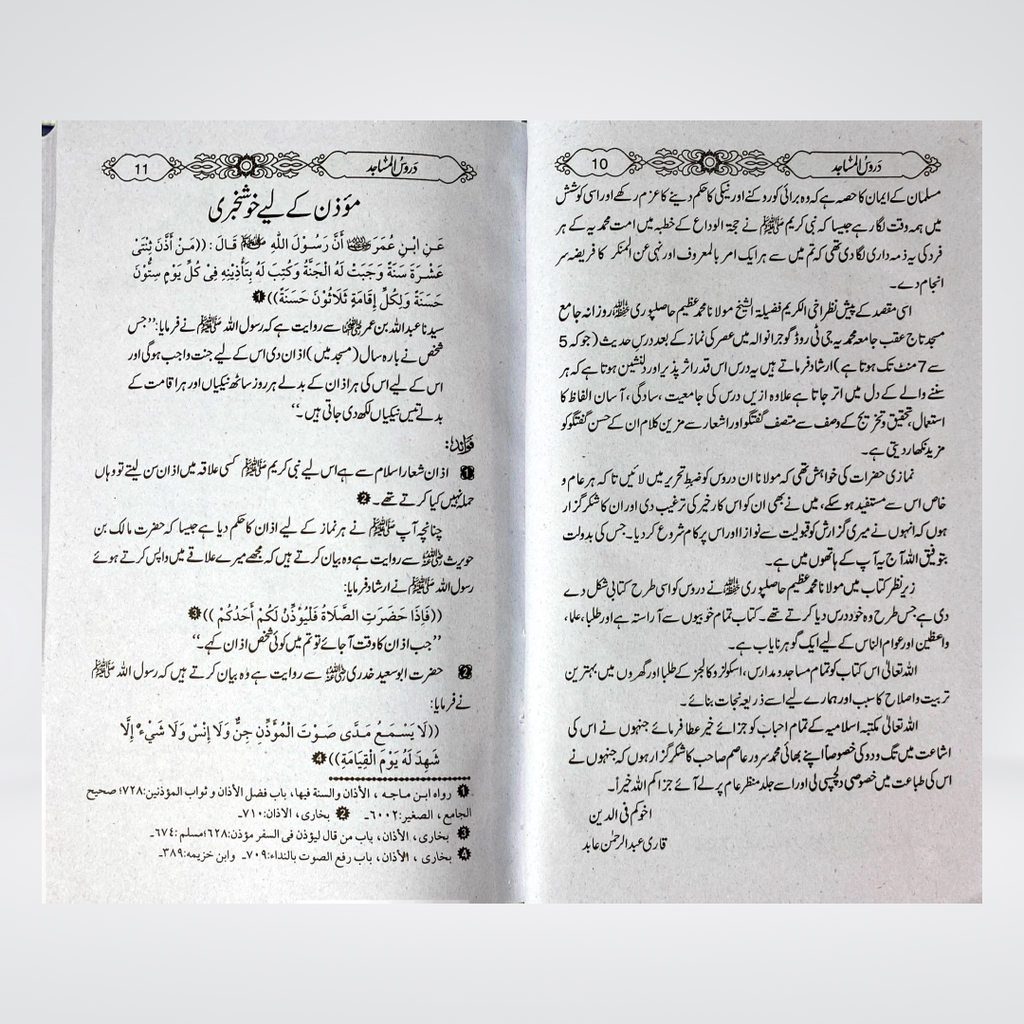 دروس المساجد 10
مسلمان کے ایمان کا حصہ ہے کہ وہ برائی کو روکنے اور نیکی کا حکم دینے کا عزم رکھے اور اسی کوشش
میں ہمہ وقت لگا رہے جیسا کہ نبی کریم ﷺ نے حجۃ الوداع کے خطبہ میں امت محمدیہ کے ہر
فرد کی یہ ذمہ داری لگا دی تھی کہ تم میں سے ہر ایک امر بالمعروف اور نہی عن المنکر کا فریضہ سر
انجام دے۔
اسی مقصد کے پیش نظر اخی الکریم فضیلۃ الشیخ مولانا محمد عظیم حاصلپوری ﷾ روزانہ جامع
مسجد تاج عقب جامعہ محمدیہ جی ٹی روڈ گوجرانوالہ میں عصر کی نماز کے بعد درس حدیث (جو کہ 5
سے 7 منٹ تک ہوتا ہے) ارشاد فرماتے ہیں یہ درس اس قدر اثر پذیر اور دلنشین ہوتا ہے کہ ہر
سننے والے کے دل میں اتر جاتا ہے علاوہ ازیں درس کی جامعیت، سادگی، آسان الفاظ کا
استعمال، تحقیق و تخریج کے وصف سے متصف گفتگو اور اشعار سے مزین کلام ان کے حسن گفتگو کو
مزید نکھار دیتی ہے۔
نمازی حضرات کی خواہش تھی کہ مولانا ان دروس کو ضبط تحریر میں لائیں تا کہ ہر عام و
خاص اس سے مستفید ہو سکے، میں نے بھی ان کو اس کار خیر کی ترغیب دی اور ان کا شکر گزار
ہوں کہ انہوں نے میری گزارش کو قبولیت سے نوازا اور اس پر کام شروع کر دیا۔ جس کی بدولت
بتوفیق اللہ آج یہ آپ کے ہاتھوں میں ہے۔
زیر نظر کتاب میں مولانا محمد عظیم حاصلپوری ﷾ نے دروس کو اسی طرح کتابی شکل دے
دی ہے جس طرح وہ خود درس دیا کرتے تھے۔ کتاب تمام خوبیوں سے آراستہ ہے اور طلباء، علماء،
واعظین اور عوام الناس کے لیے ایک گوہر نایاب ہے۔
اللہ تعالیٰ اس کتاب کو تمام مساجد و مدارس، اسکولز و کالجز کے طلبا اور گھروں میں بہترین
تربیت و اصلاح کا سبب اور ہمارے لیے اسے ذریعہ نجات بنائے۔
اللہ تعالیٰ مکتبہ اسلامیہ کے تمام احباب کو جزائے خیر عطا فرمائے جنہوں نے اس کی
اشاعت میں تگ و دو کی خصوصاً اپنے بھائی محمد سرور عاصم صاحب کا شکر گزار ہوں کہ جنہوں نے
اس کی طباعت میں خصوصی دلچسپی لی اور اسے جلد منظر عام پر لے آئے جزاکم اللہ خیراً۔
اخوکم فی الدین
قاری عبدالرحمٰن عابد
دروس المساجد 11
مؤذن کے لیے خوشخبری
عَنِ ابْنِ عُمَرَ ؓ أَنَّ رَسُوْلَ اللّٰهِ ﷺ قَالَ: ((مَنْ أَذَّنَ ثِنْتَىْ
عَشْرَةَ سَنَةً وَجَبَتْ لَهُ الْجَنَّةُ وَكُتِبَ لَهُ بِتَأْذِيْنِهِ فِىْ كُلِّ يَوْمٍ سِتُّوْنَ
حَسَنَةً وَلِكُلِّ إِقَامَةٍ ثَلَاثُوْنَ حَسَنَةً)) ❶
سیدنا عبداللہ بن عمر ؓ سے روایت ہے کہ رسول اللہ ﷺ نے فرمایا: ’’جس
شخص نے بارہ سال (مسجد میں) اذان دی اس کے لیے جنت واجب ہوگی اور
اس کے لیے اس کی ہر اذان کے بدلے ہر روز ساٹھ نیکیاں اور ہر اقامت کے
بدلے تیس نیکیاں لکھ دی جاتی ہیں۔‘‘
فوائد:
1 اذان شعار اسلام سے ہے اس لیے نبی کریم ﷺ کسی علاقہ میں اذان سن لیتے تو وہاں
حملہ نہیں کیا کرتے تھے۔ ❷
چنانچہ آپ ﷺ نے ہر نماز کے لیے اذان کا حکم دیا ہے جیسا کہ حضرت مالک بن
حویرث ؓ سے روایت ہے وہ بیان کرتے ہیں کہ مجھے میرے علاقے میں واپس کرتے ہوئے
رسول اللہ ﷺ نے ارشاد فرمایا:
((فَإِذَا حَضَرَتِ الصَّلَاةُ فَلْيُؤَذِّنْ لَكُمْ أَحَدُكُمْ)) ❸
’’جب اذان کا وقت آ جائے تو تم میں کوئی شخص اذان کہے۔‘‘
2 حضرت ابوسعید خدری ؓ سے روایت ہے وہ بیان کرتے ہیں کہ رسول اللہ ﷺ
نے فرمایا:
((لَا يَسْمَعُ مَدَى صَوْتِ الْمُؤَذِّنِ جِنٌّ وَلَا إِنْسٌ وَلَا شَيْءٌ إِلَّا
شَهِدَ لَهُ يَوْمَ الْقِيَامَةِ)) ❹
❶ رواه ابن ماجه ، الأذان والسنة فيها، باب فضل الأذان و ثواب المؤذنين:٧٢٨؛ صحيح
الجامع، الصغير:٦٠٠٢۔ ❷ بخارى، الاذان:٧١٠۔
❸ بخارى، الأذان، باب من قال ليؤذن فى السفر مؤذن:٦٢٨؛ مسلم:٦٧٤۔
❹ بخارى ، الأذان، باب رفع الصوت بالنداء:٧٠٩۔ وابن خزيمه:٣٨٩۔